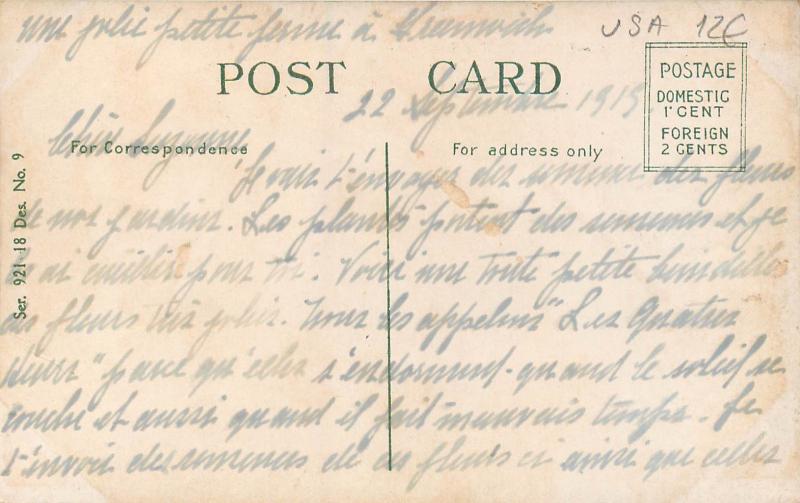 une jolie petite ferme à Greenwich
USA 12€
POST CARD
POSTAGE
DOMESTIC
1 CENT
FOREIGN
2 CENTS
22 Septembre 1919
Chère Suzanne
For Correspondence
For address only
Je vais t'envoyer des semences des fleurs
de nos jardins. Les plantes portent des semences et je
ai cueillies pour toi. Voici une toute petite
des fleurs très jolies. Nous les appelons "Les Quatres
heures" parce qu'elles s'endorment quand le soleil se
couche et aussi quand il fait mauvais temps. Je
t'envoie des semences de ces fleurs ci ainsi que celles
Ser. 921-18 Des. No. 9